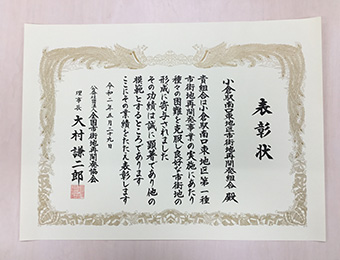 表彰状
小倉駅南口東地区市街地再開発組合 殿
貴組合は小倉駅南口東地区第一種
市街地再開発事業の実施にあたり
種々の困難を克服し良好な市街地の
形成に寄与されました
その功績は誠に顕著であり他の
模範とするところであります
ここにその業績をたたえ表彰します
令和二年五月二十九日
公益社団法人全国市街地再開発協会
理事長 大村謙二郎